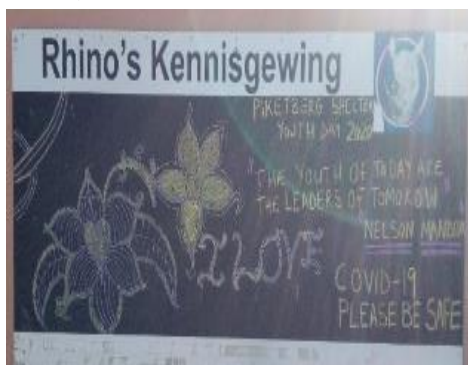 Rhino's Kennisgewing
PIKETBERG SHELTER
YOUTH DAY 2020
"THE YOUTH OF TODAY ARE
THE LEADERS OF TOMOROW"
NELSON MANDELA
I LOVE
COVID-19
PLEASE BE SAFE